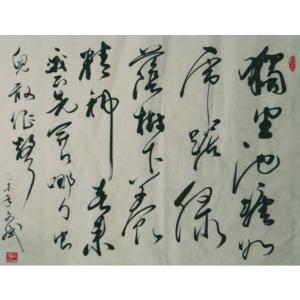 獨坐池塘如
虎踞綠
蔭樹下養
精神春來
我不先開口哪个虫
兒敢作聲
乙未年